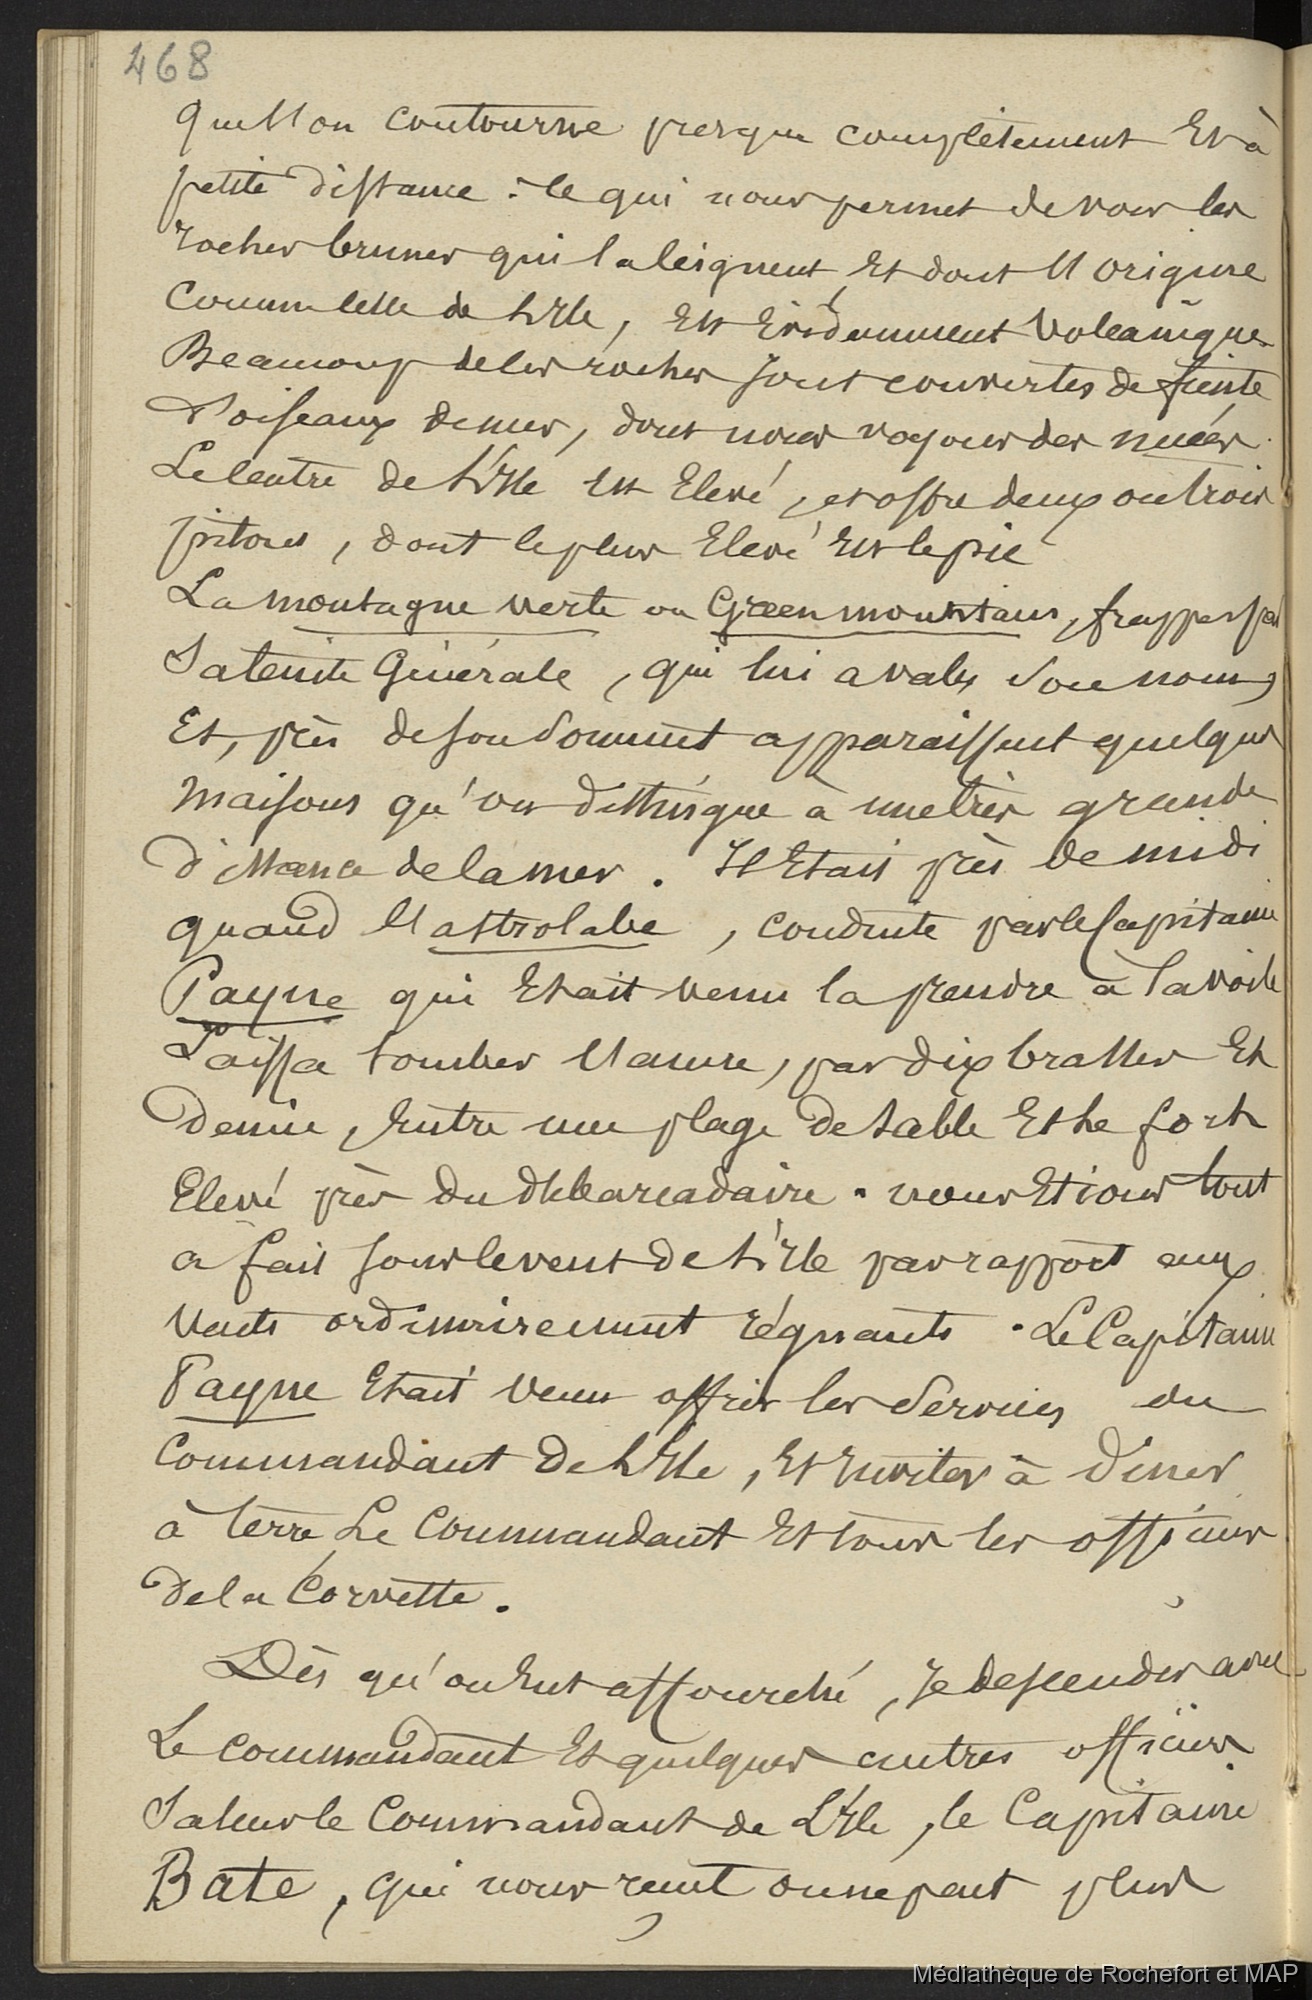 468
que l'on contourne presque complètement Et à
petite distance : ce qui nous permet de voir les
rochers bruns qui la ceignent, Et dont l'origine
Comme celle de l'Ile, Est Evidemment Volcanique.
Beaucoup de ces rocher sont couvertes de fiente
d'oiseaux de mer, dont nous voyons des nuées.
Le Centre de l'Ile Est Elevé, et offre deux ou trois
pitons, dont le plus Elevé Est le pic
La montagne verte ou Green mountain, frappe par
Sa teinte Générale, qui lui a valu son nom,
Et, près de son Sommet apparaissent quelques
Maisons qu'on distingue à une très grande
distance de la mer. Il Etait près de midi
quand l'astrolabe, conduite par le Capitaine
Payne qui Etait venu la prendre à la voile
Laissa tomber l'ancre, par dix brasses Et
demie, Entre une plage de sable Et le fort
Elevé près du débarcadaire. nous Etions tout
a fait sous le vent de l'Ile par rapport aux
Vents ordinairement régnants. Le Capitaine
Payne Etait venu offrir les Services du
Commandant de l'Ile, Et Inviter à diner
à terre Le Commandant Et tous les officiers
de la Corvette.
Dès qu'on Eut affourché, Je descendis avec
Le commandant Et quelques autres officiers.
Saluer le Commandant de L'Ile, le Capitaine
Bate, qui nous recut on ne peut plus
Médiathèque de Rochefort et MAP